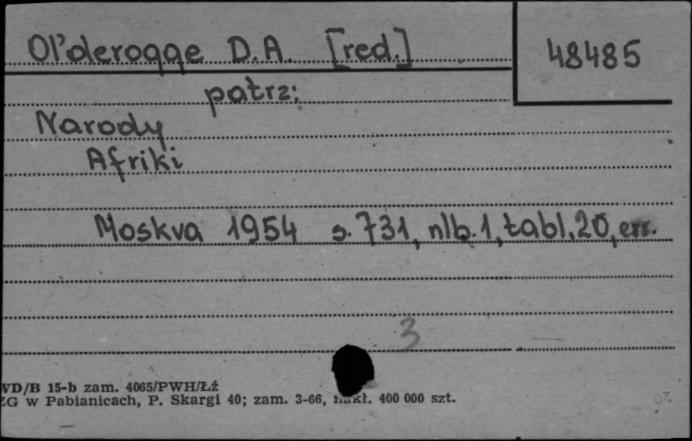 Ol'derogge D.A. [red.]
48485
patrz:
Narody
Afriki
Moskva 1954 s. 731, nlb. 1, tabl. 20, err.
3
WD/B 15-b zam. 4065/PWH/Łź
ZG w Pabianicach, P. Skargi 40; zam. 3-66, nakł. 400 000 szt.